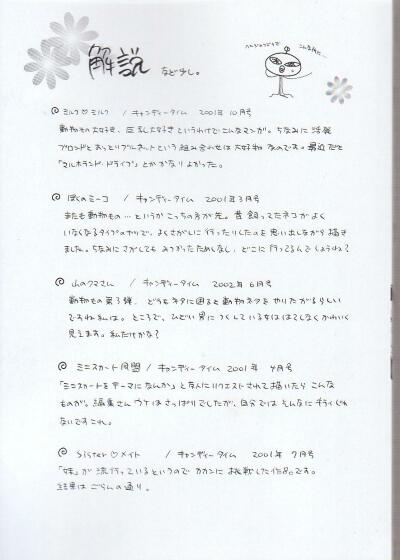 解説 などなし。
こんな所に…
ミルク♡ミルク / キャンディータイム 2001年10月号
動物もの大好き、巨乳大好きというわけでこんなマンガ。ちなみに活発
ブロンドとおっとりブルネットという組み合わせは大好物なのです。最近だと
「マルホランド・ドライブ」とかかなりよかった。
ぼくのミーコ / キャンディータイム 2001年3月号
またも動物もの…というかこっちの方が先。昔飼ってたネコがよく
いなくなるタイプのヤツで、よくさがしに行ったりしたのを思い出しながら描き
ました。ちなみにさがしても みつかったためしなし。どこに行ってるんでしょうね?
山のクマさん / キャンディータイム 2002年6月号
動物もの第3弾。どうもネタに困ると動物ネタをやりたがるらしい
ですね私は。ところで、ひどい男につくしている女ははてしなくかわいく
見えます。私だけかな?
ミニスカート同盟 / キャンディータイム 2001年 4月号
「ミニスカートをテーマになんか」と友人にリクエストされて描いたら こんな
ものが。編集さんウケはさっぱりでしたが、自分ではそんなにキライじゃ
ないですこれ。
Sister♡メイト / キャンディータイム 2001年7月号
「妹」が流行っているというので カカンに挑戦した作品です。
結果はごらんの通り。